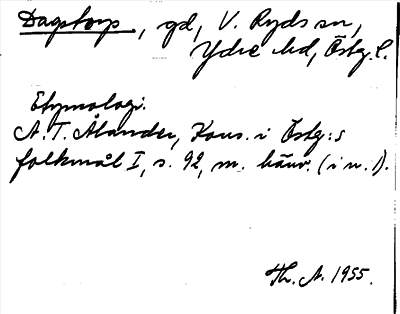 Dagstorp, gd, V. Ryds sn,
Ydre hd, Östg. l.
Etymologi.
A. T. Ålander, Kons. i Östg:s
folkmål I, s. 92, m. hänv. (i n. 1).
Th. A. 1955.